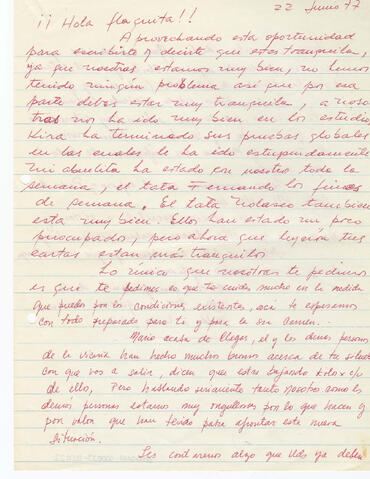 22 Junio 77
¡¡ Hola flaquita!!
Aprovechando esta oportunidad
para escribirte y decirte que estes tranquila,
ya que nosotras estamos muy bien, no hemos
tenido ningún problema así que por esa
parte debes estar muy tranquila, a noso
tras nos ha ido muy bien en los estudios
Kira ha terminado sus pruebas globales
en las cuales le ha ido estupendamente
mi abuelita ha estado con nosotros toda la
semana, el tata Fernando los fines
de semana. El tata Nolasco tambien
esta muy bien. Ellos han estado un poco
preocupados, pero ahora que leyeron tus
cartas estan más tranquilos
Lo unico que nosotras te pedimos
es que te cuides mucho en la medida
que puedas por las condiciones existentes, acá te esperamos
con todo preparado para ti y para la Sra Carmen.
Mario acaba de llegar, el y las demás personas
de la vicaria han hecho muchas bromas acerca de tu salud
con que vas a salir, dicen que estas bajando kilos c/u
de ello, Pero hablando seriamente tanto nosotros como las
demás personas estamos muy orgullosos por lo que hacen y
por valor que han tenido para afrontar esta nueva
situación.
Les contaremos algo que Uds ya deben